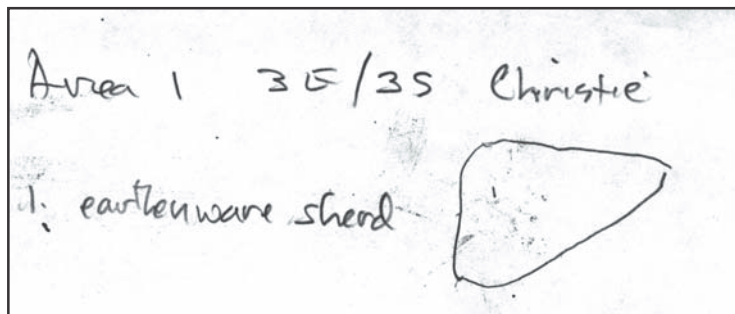 Area 1 3E/3S Christie
1. earthenware sherd